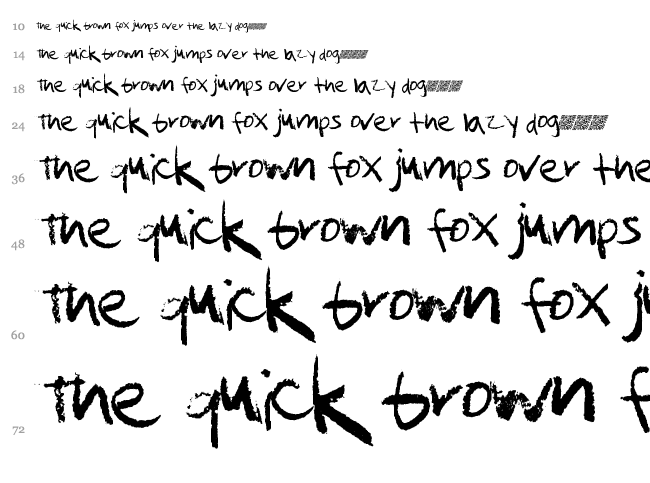 10 the quick brown fox jumps over the lazy dog
14 the quick brown fox jumps over the lazy dog
18 the quick brown fox jumps over the lazy dog
24 the quick brown fox jumps over the lazy dog
36 the quick brown fox jumps over the
48 the quick brown fox jumps
60 the quick brown fox j
72 the quick brown f